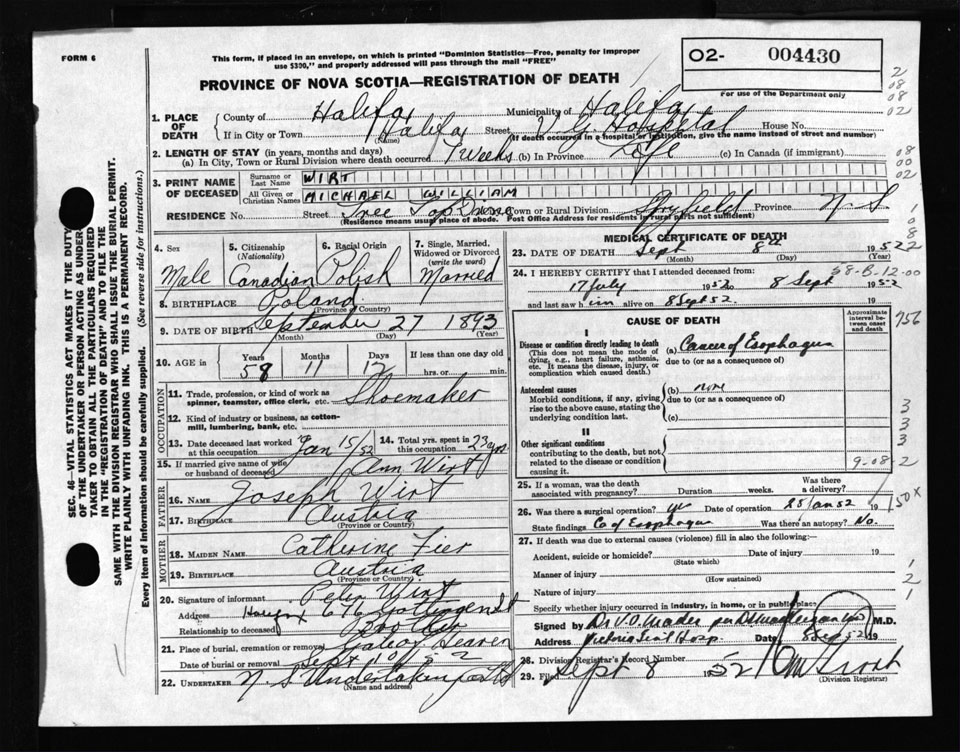 FORM 6
This form, if placed in an envelope, on which is printed "Dominion Statistics—Free, penalty for improper
use $300," and properly addressed will pass through the mail "FREE"
PROVINCE OF NOVA SCOTIA—REGISTRATION OF DEATH
02- 004430
For use of the Department only
2
08
08
02
1. PLACE OF DEATH
County of Halifax Municipality of Halifax
If in City or Town Halifax Street V.G. Hospital House No.
(Name) (If death occurred in a hospital or institution, give the name instead of street and number)
2. LENGTH OF STAY (in years, months and days)
(a) In City, Town or Rural Division where death occurred 7 weeks (b) In Province Life (c) In Canada (if immigrant)
08
00
02
3. PRINT NAME OF DECEASED
Surname or Last Name WIRT
All Given or Christian Names MICHAEL WILLIAM
RESIDENCE No. Street Tree Top Drive Town or Rural Division Spryfield Province N.S
(Residence means usual place of abode. Post Office Address for residents in rural parts not sufficient)
SEC. 46—VITAL STATISTICS ACT MAKES IT THE DUTY
OF THE UNDERTAKER OR PERSON ACTING AS UNDER-
TAKER TO OBTAIN ALL THE PARTICULARS REQUIRED
IN THE "REGISTRATION OF DEATH" AND TO FILE THE
SAME WITH THE DIVISION REGISTRAR WHO SHALL ISSUE THE BURIAL PERMIT.
WRITE PLAINLY WITH UNFADING INK. THIS IS A PERMANENT RECORD.
Every item of information should be carefully supplied. (See reverse side for instructions.)
4. Sex Male
5. Citizenship (Nationality) Canadian
6. Racial Origin Polish
7. Single, Married, Widowed or Divorced (write the word) Married
8. BIRTHPLACE Poland
(Province or Country)
9. DATE OF BIRTH September 27 1893
(Month) (Day) (Year)
10. AGE in Years 58 Months 11 Days 12 If less than one day old
hrs. or min.
OCCUPATION
11. Trade, profession, or kind of work as
spinner, teamster, office clerk, etc. Shoemaker
12. Kind of industry or business, as cotton-
mill, lumbering, bank, etc.
13. Date deceased last worked at this occupation Jan 15/52 14. Total yrs. spent in this occupation 23 yrs.
15. If married give name of wife or husband of deceased Ann Wirt
FATHER
16. NAME Joseph Wirt
17. BIRTHPLACE Austria
(Province or Country)
MOTHER
18. MAIDEN NAME Catherine Fier
19. BIRTHPLACE Austria
(Province or Country)
20. Signature of informant Peter Wirt
Address Halifax 676 Gottingen St
Relationship to deceased Brother
21. Place of burial, cremation or removal Gate of Heaven
Date of burial or removal Sept 10 1952
22. UNDERTAKER N.S Undertaking Co Ltd
(Name and address)
MEDICAL CERTIFICATE OF DEATH
23. DATE OF DEATH Sept 8th 1952
(Month) (Day) (Year)
24. I HEREBY CERTIFY that I attended deceased from: 58-B-12-00
17 July 1952 to 8 Sept 1952
and last saw him alive on 8 Sept 52. 19
CAUSE OF DEATH
Approximate interval between onset and death
756
I
Disease or condition directly leading to death (a) Cancer of Esophagus
(This does not mean the mode of dying, e.g., heart failure, asthenia, etc. It means the disease, injury, or complication which caused death.) due to (or as a consequence of)
Antecedent causes (b) none
Morbid conditions, if any, giving rise to the above cause, stating the underlying condition last. due to (or as a consequence of)
(c)
3
3
3
2
II
Other significant conditions
contributing to the death, but not
related to the disease or condition
causing it.
9-08-2
25. If a woman, was the death associated with pregnancy? Duration weeks. Was there a delivery?
26. Was there a surgical operation? yes Date of operation 25 Jan 52 19
150X
State findings Ca of Esophagus Was there an autopsy? No.
27. If death was due to external causes (violence) fill in also the following:—
Accident, suicide or homicide? Date of injury 19
(State which)
Manner of injury
(How sustained)
Nature of injury
1
2
1
Specify whether injury occurred in industry, in home, or in public place
Signed by Dr V.O. Mader per M.D.
Address Victoria Genl Hosp. Date 8 Sep 52 19
28. Division Registrar's Record Number
29. Filed Sept 8 1952
(Division Registrar)